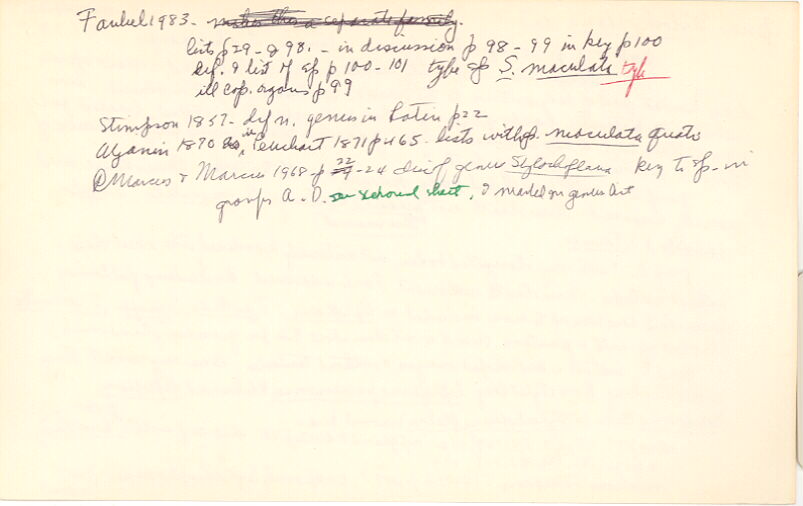 Faubel 1983 - makes this a separate family.
lists p 29 - & 98. - in discussion p 98 - 99 in key p 100
def. & list of sp p 100 - 101 type sp S. maculata type
ill cop. organs p 99
Stimpson 1857 - def n. genus in Latin p 22
Uljanin 1870 in Leuckart 1871 p 465. lists with sp. maculata Quatr
Marcus & Marcus 1968 - p 22 - 24 disc of genus Stylochoplana key to sp. in
groups A - D. see xeroxed sheet, I marked on genus list